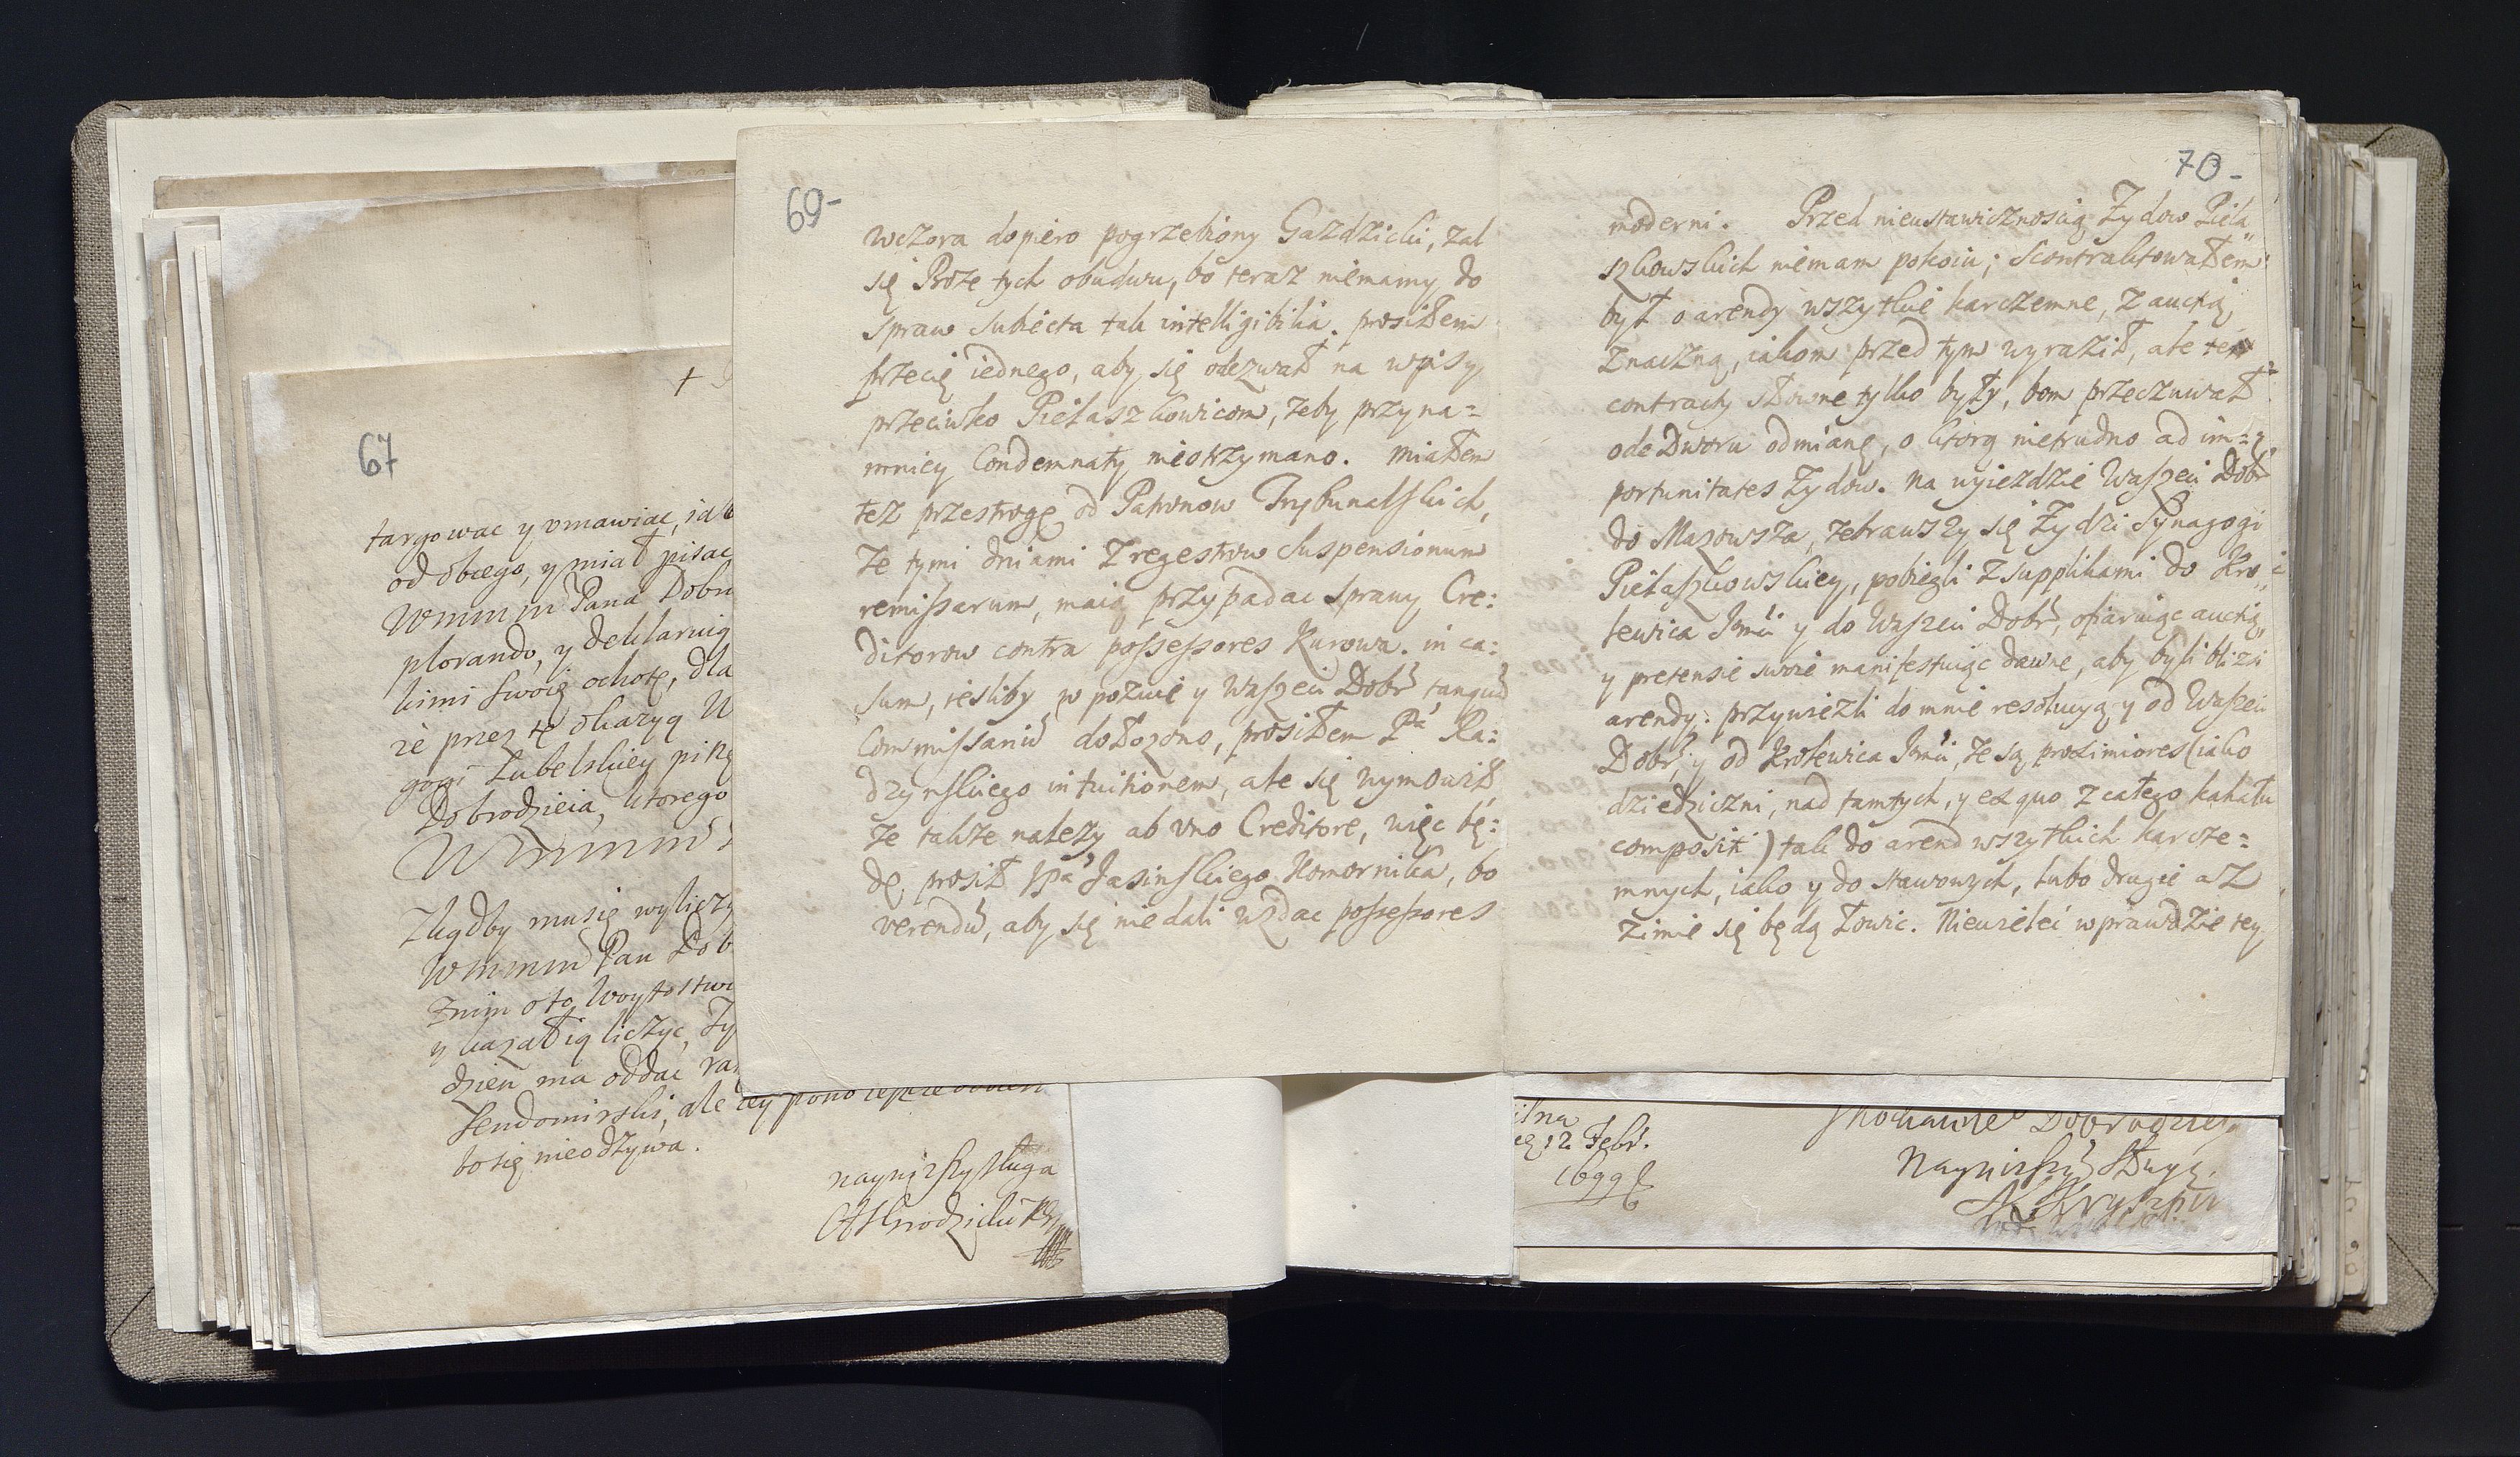 67
targowac y vmawiac, iak
od obcego, y miał pisac
Wmmm Pana Dobr
plorando, y deklaruią
kimi swoię ochotę, dla
że przez tę okazyą W
gogi Lubelskiey
Dobrodzieia, ktorego
Wmmm
musię
Wmmm Pan Dob
znim oto Woytostw
y kazał ią liczyc, Zy
dzien ma oddac
Sendomirski, ale
bo się nieodzywa.
nayniższy sługa
69-
wczora dopiero pogrzebiony Gazdzicki, zal
się Boze tych obudwu, bo teraz niemamy do
spraw subiecta tak intelligibilia. prosiłem
przecię iednego, aby się odezwał na wpisy
przeciwko Pietaszkowicom, zeby przyna=
mniey Condemnaty nieotrzymano. miałem
tez przestrogę od Patronow Trybunalskich,
ze tymi dniami z regestrow suspensionum
remissarum, maią przypadac sprawy Cre:
ditorow contra possessores Kurowa. in ca:
sum, iesliby w pozwie y Waszeci Dobr tanqua
Commissariu dołozono, prosiłem Pa Ra:
dzynskiego intuitionem, ale się wymowił,
ze takze nalezy ab vno Creditore, więc bę:
dę prosił Jpa Jasinskiego Komornika, bo
verendu, aby się nie dali wzdac possessores
70-
moderni. Przed nieustawicznoscią Zydow Pieta
szkowskich niemam pokoiu; Scontraktowałem
był o arendy wszytkie karczemne, z auctią
znaczną, iakom przed tym wyraził, ale te
contracty słowne tylko były, bom przeczuwał
ode Dworu odmianę, o ktorą nietrudno ad im=
portunitates Zydow. na wyiezdzie Waszeci Dobr
do Mazowsza, zebrawszy się Zydzi Synagogi
Pietaszkowskiey, pobiegli z supplikami do Kro
lewica Jmci y do Waszeci Dobr, ofiaruiąc auctią,
y pretensie swoie manifestuiąc dawne, aby byli blizsi
arendy: przywiezli do mnie resolucyą y od Waszeci
Dobr, y od Krolewica Jmci, ze są proximiores (iako
dziedziczni, nad tamtych, y ex quo z całego kahału
compositi) tak do arend wszytkich karcze=
mnych, iako y do stawowych, lubo drugie az
zimie się będą łowic. Niewiele wprawdzie tey
12 Febr.
1699
Dobrodzieia
Nayniższy Sługa